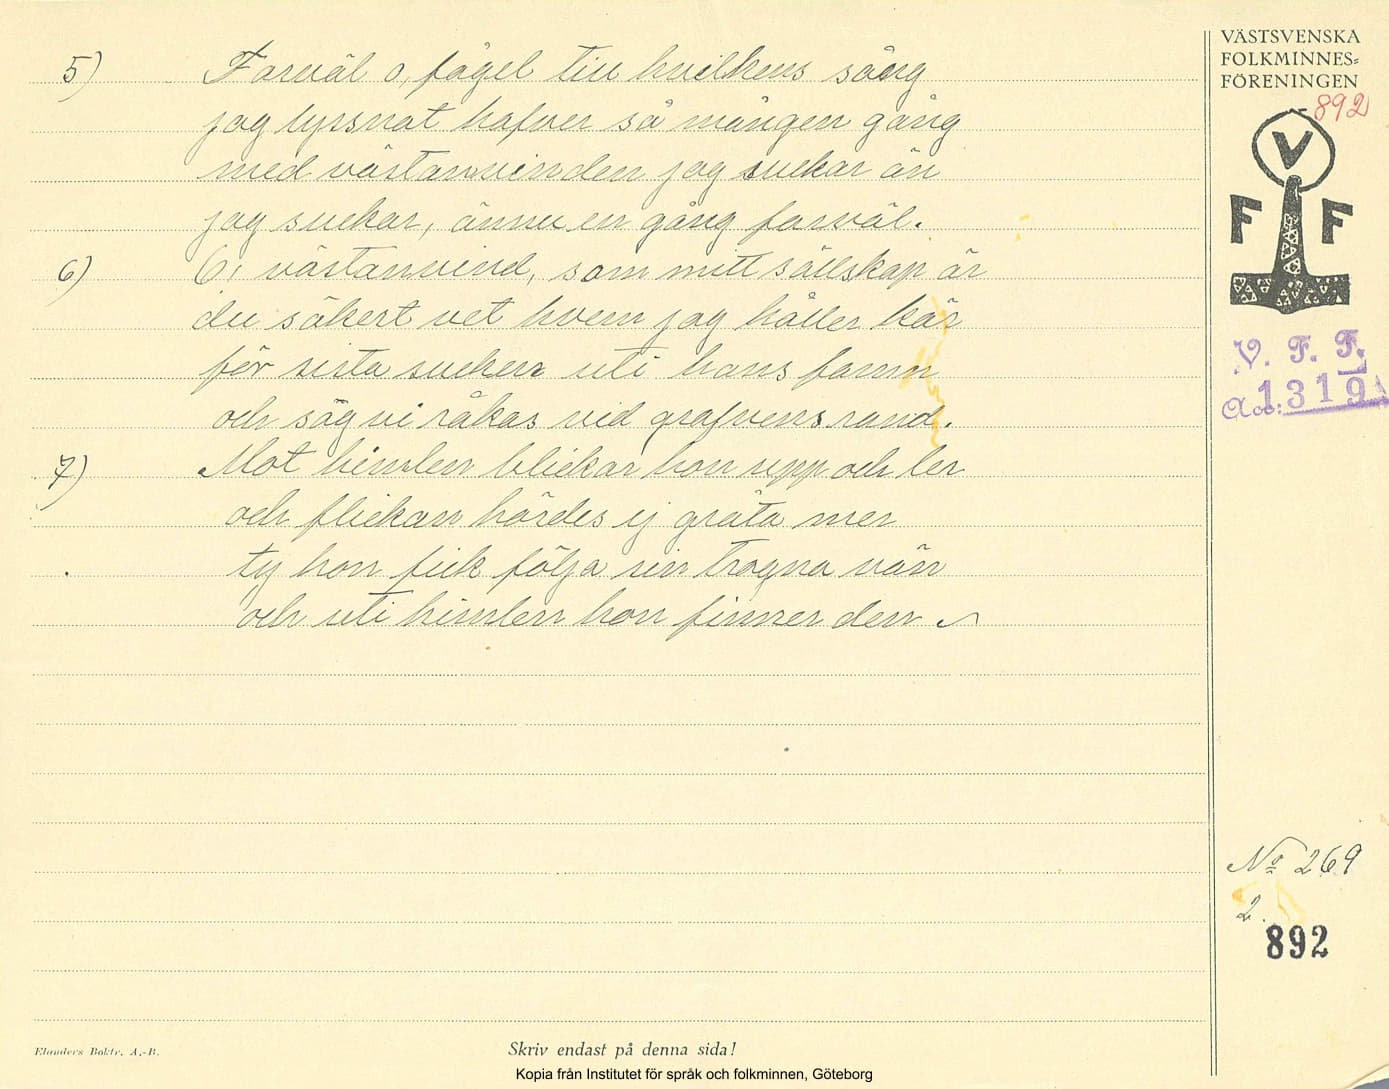 5) Farväl o, fågel till hvilkens sång
jag lyssnat hafver så mången gång
med västanvinden jag suckar än
jag suckar, ännu en gång farväl.
6) O, västanvind, som mitt sällskap är
du säkert vet hvem jag håller kär
för sista sucken uti hans famn
och säg vi råkas vid grafvens rand.
7) Mot himlen blickar hon upp och ler
och flickan hördes ej gråta mer
ty hon fick följa sin trogna vän
och uti himlen hon finner den
VÄSTSVENSKA
FOLKMINNES-
FÖRENINGEN
892
V
F F
V. F. F.
Acc: 1319
No 269
2.
892
Elanders Boktr. A.-B.
Skriv endast på denna sida!
Kopia från Institutet för språk och folkminnen, Göteborg